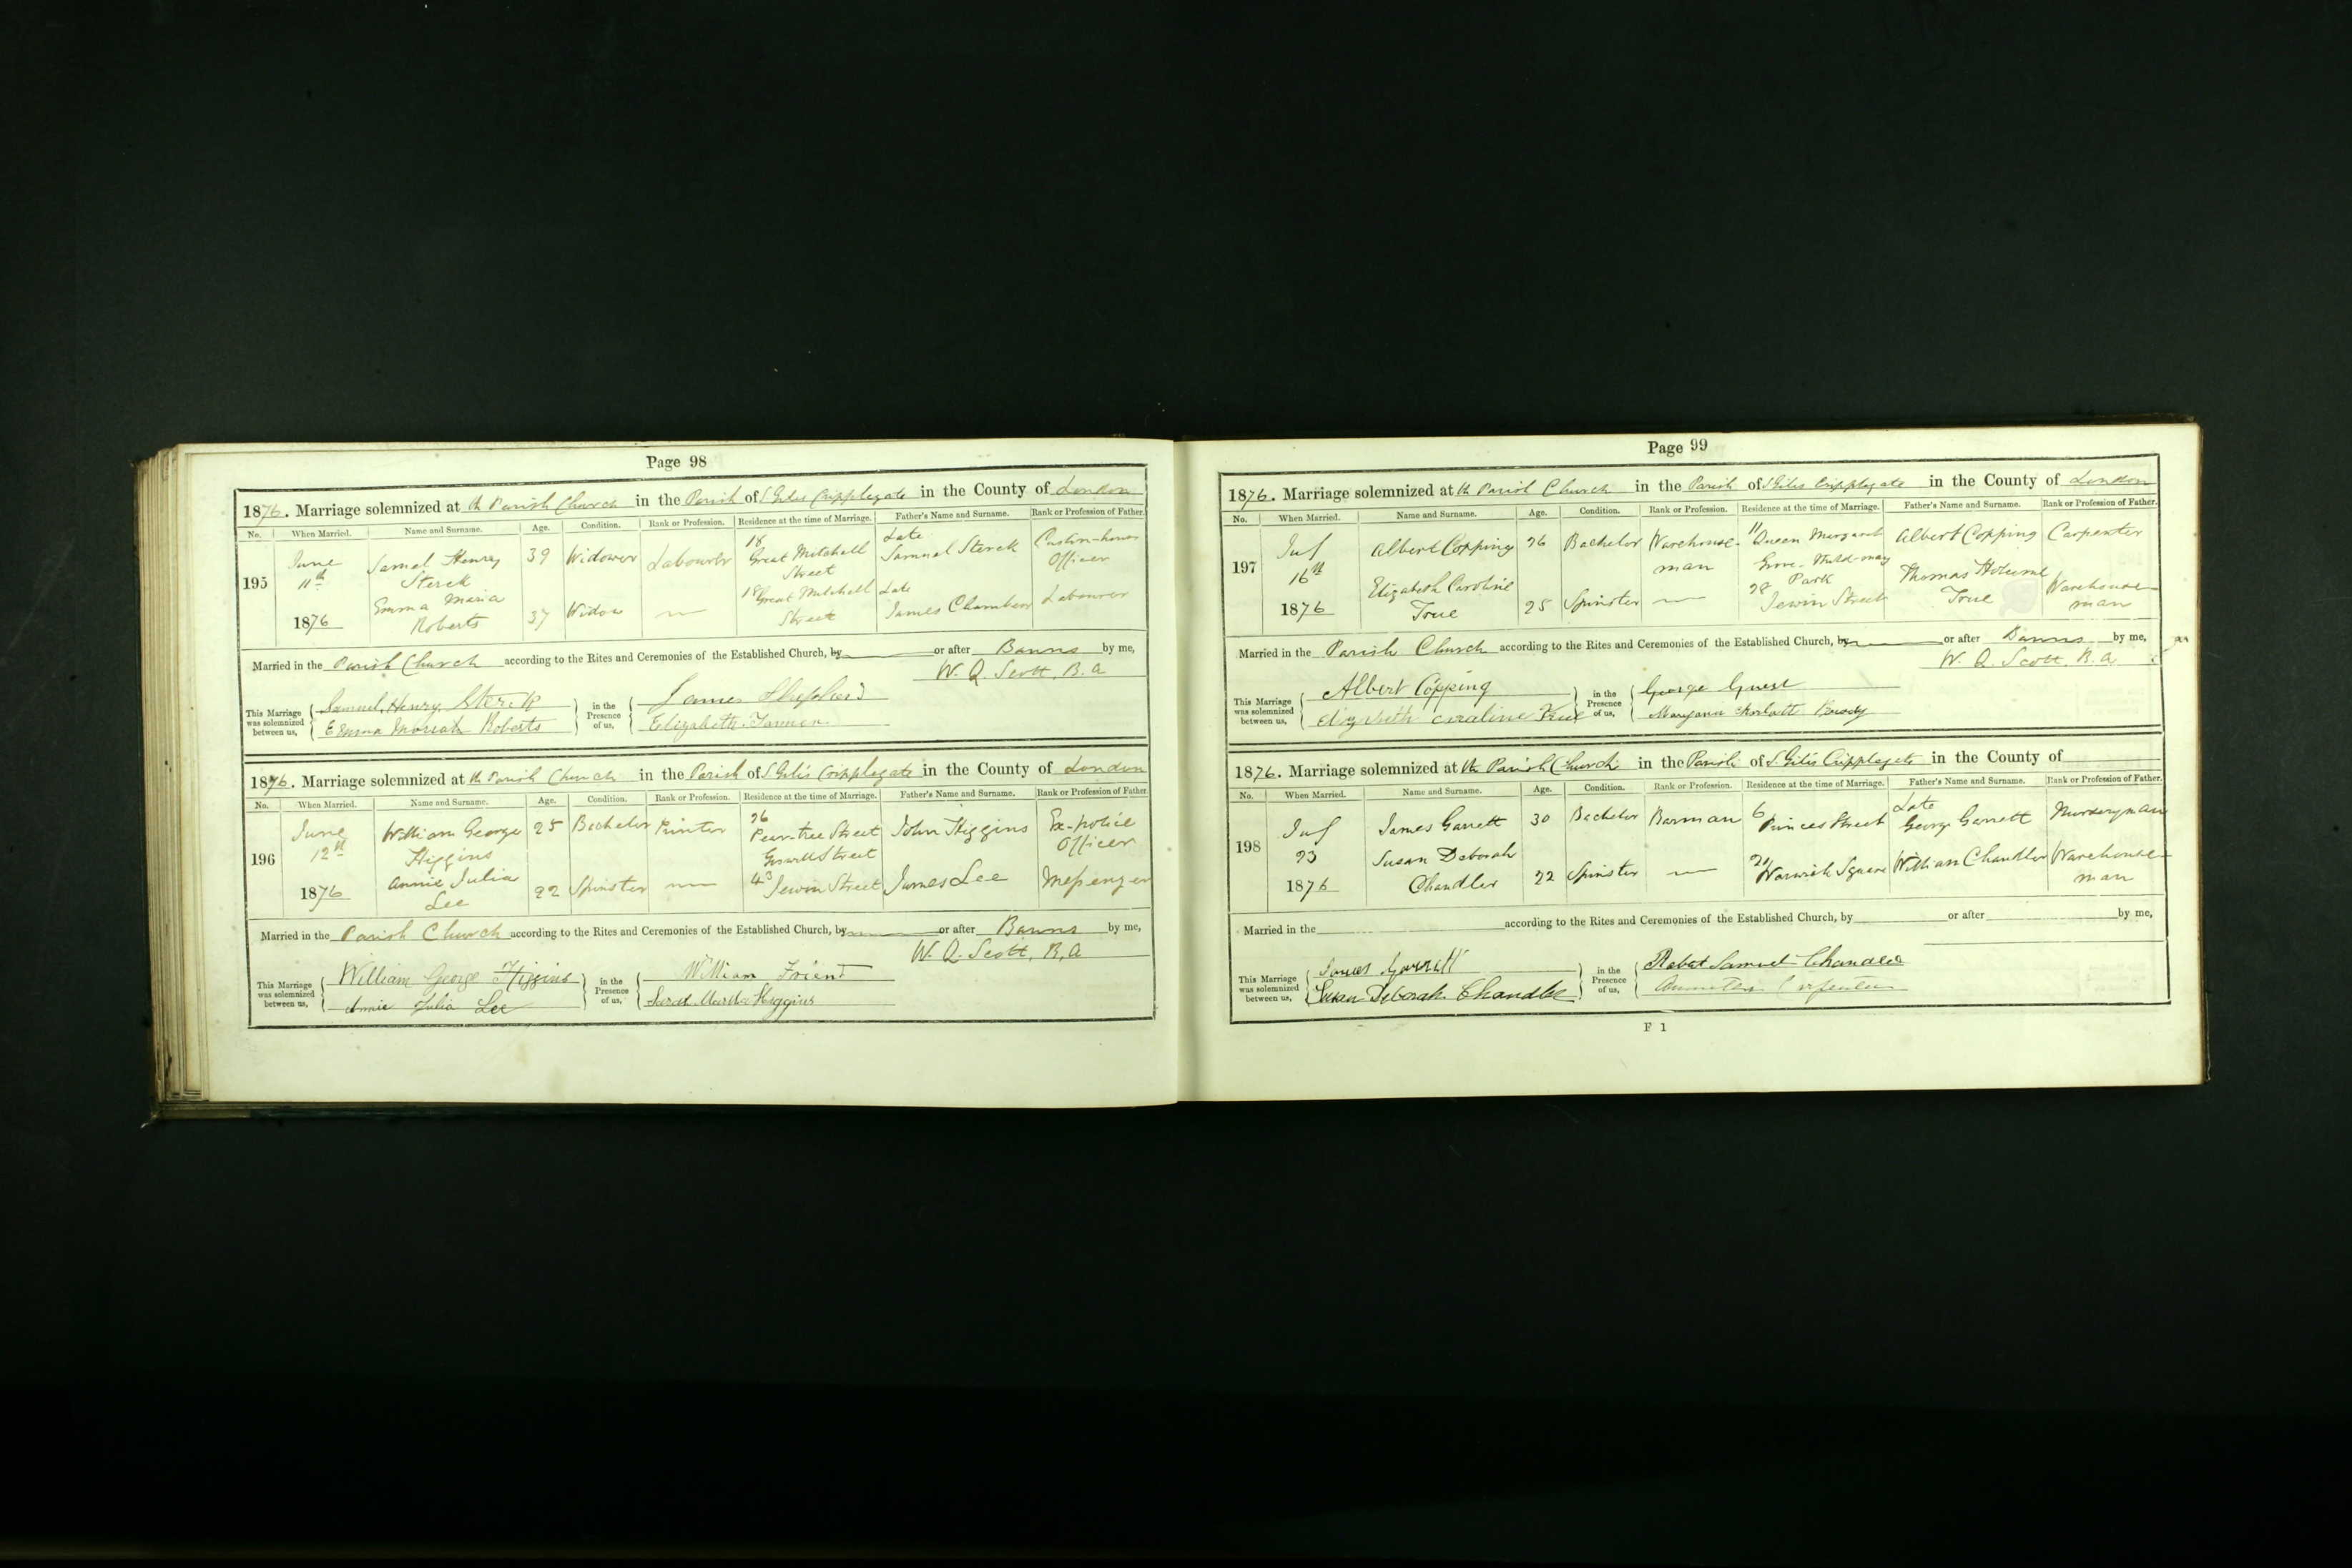 Page 98
1876. Marriage solemnized at the Parish Church in the Parish of S Giles Cripplegate in the County of London
No. When Married. Name and Surname. Age. Condition. Rank or Profession. Residence at the time of Marriage. Father's Name and Surname. Rank or Profession of Father.
195 June 11th 1876 Samel Henry Sterck 39 Widower Labourer 18 Great Mitchell Street Late Samuel Sterck Custom-house Officer
Emma Maria Roberts 37 Widow 18 Great Mitchell Street Late James Chambers Labourer
Married in the Parish Church according to the Rites and Ceremonies of the Established Church, by or after Banns by me,
W. Q. Scott, B.A
This Marriage was solemnized between us, Samuel Henry Sterck in the Presence of us, James Shephard
Emma Moriah Roberts Elizabeth Tanner
1876. Marriage solemnized at the Parish Church in the Parish of S Giles Cripplegate in the County of London
No. When Married. Name and Surname. Age. Condition. Rank or Profession. Residence at the time of Marriage. Father's Name and Surname. Rank or Profession of Father.
196 June 12th 1876 William George Higgins 25 Bachelor Printer 26 Pear-tree Street Goswell Street John Higgins Ex-police Officer
Annie Julia Lee 22 Spinster 43 Jewin Street James Lee Messenger
Married in the Parish Church according to the Rites and Ceremonies of the Established Church, by or after Banns by me,
W. Q. Scott, B.A
This Marriage was solemnized between us, William George Higgins in the Presence of us, William Friend
Annie Julia Lee Sarah Martha Higgins
Page 99
1876. Marriage solemnized at the Parish Church in the Parish of S Giles Cripplegate in the County of London
No. When Married. Name and Surname. Age. Condition. Rank or Profession. Residence at the time of Marriage. Father's Name and Surname. Rank or Profession of Father.
197 July 16th 1876 Albert Copping 26 Bachelor Warehouse-man 11 Queen Margaret Grove Mild-may Park Albert Copping Carpenter
Elizabeth Caroline True 25 Spinster 28 Jewin Street Thomas True Warehouse-man
Married in the Parish Church according to the Rites and Ceremonies of the Established Church, by or after Banns by me,
W. Q. Scott, B.A
This Marriage was solemnized between us, Albert Copping in the Presence of us, George Guest
Elizabeth Caroline True Maryann
1876. Marriage solemnized at the Parish Church in the Parish of S Giles Cripplegate in the County of
No. When Married. Name and Surname. Age. Condition. Rank or Profession. Residence at the time of Marriage. Father's Name and Surname. Rank or Profession of Father.
198 July 23 1876 James Garrett 30 Bachelor Barman 6 Princes Street Late George Garrett Nurseryman
Susan Deborah Chandler 22 Spinster Warwick Square William Chandler Warehouse-man
Married in the according to the Rites and Ceremonies of the Established Church, by or after by me,
This Marriage was solemnized between us, James Garrett in the Presence of us, Robert Samuel Chandler
Susan Deborah Chandler Carpenter
F 1